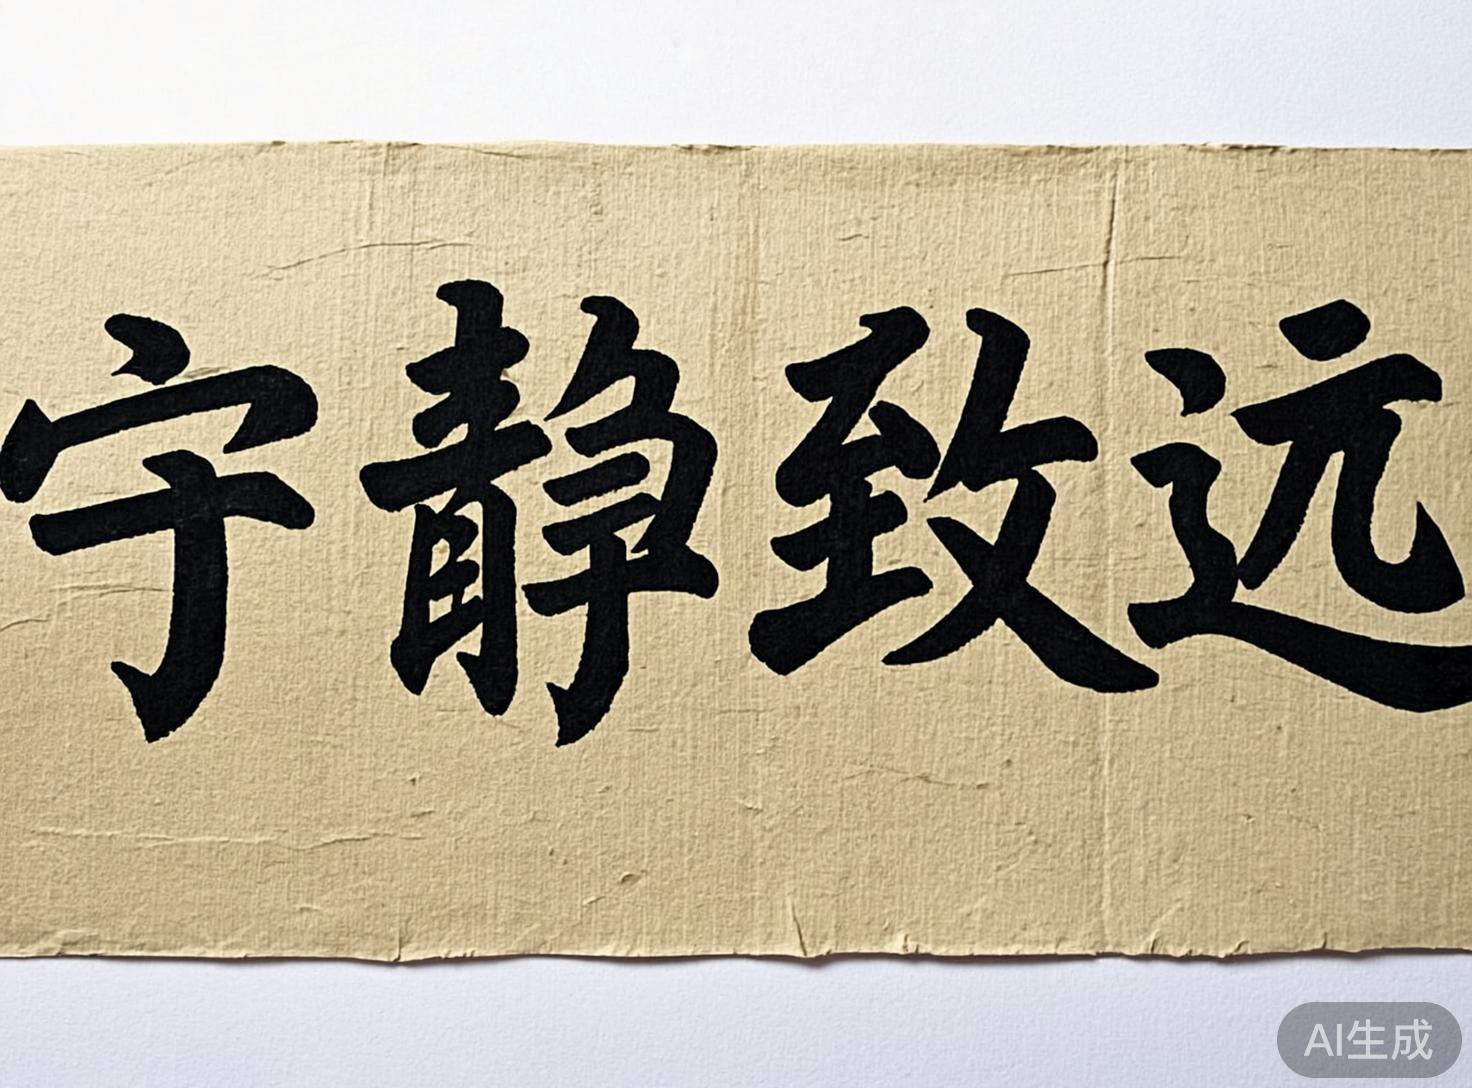 宁静致远
AI生成